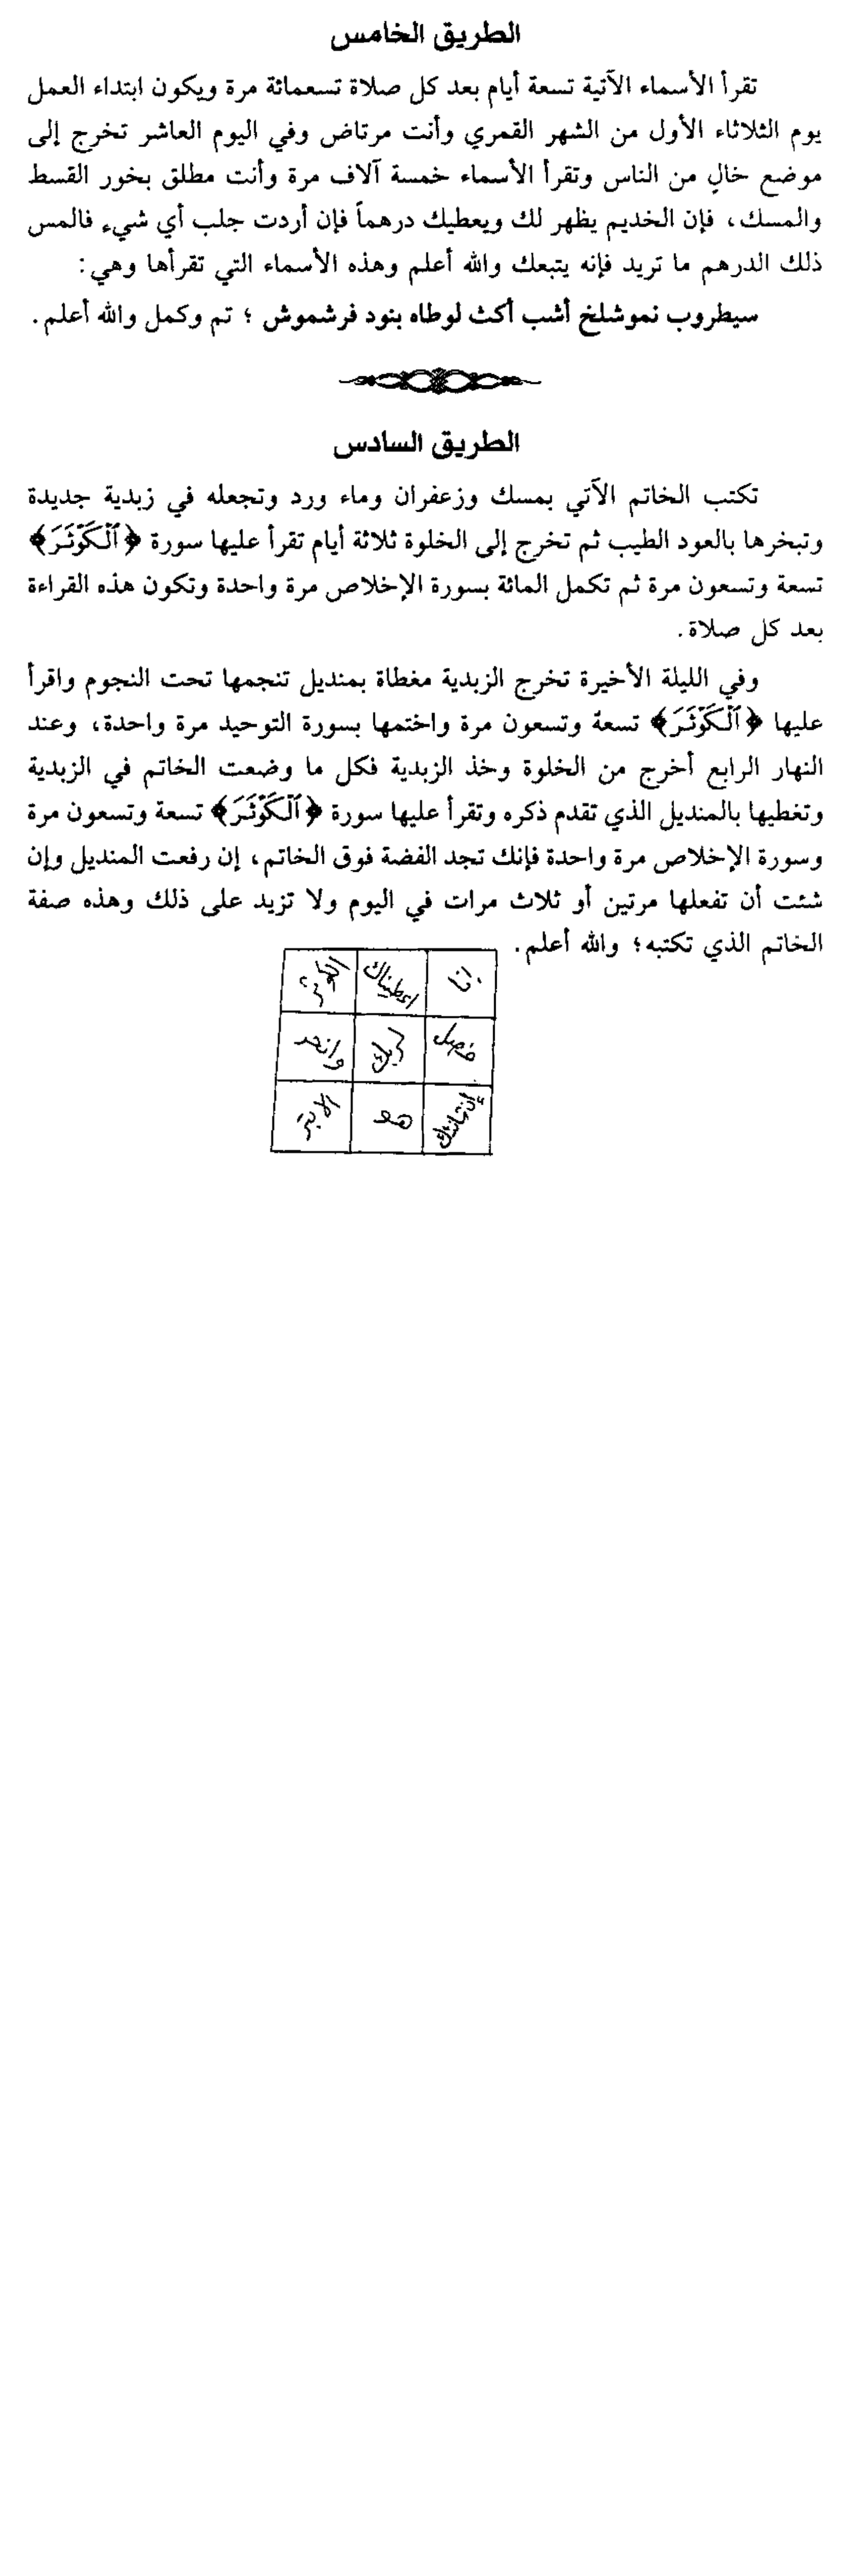 الطريق الخامس
تقرأ الأسماء الآتية تسعة أيام بعد كل صلاة تسعمائة مرة ويكون ابتداء العمل
يوم الثلاثاء الأول من الشهر القمري وأنت مرتاض وفي اليوم العاشر تخرج إلى
موضع خالٍ من الناس وتقرأ الأسماء خمسة آلاف مرة وأنت مطلق بخور القسط
والمسك، فإن الخديم يظهر لك ويعطيك درهماً فإن أردت جلب أي شيء فالمس
ذلك الدرهم ما تريد فإنه يتبعك والله أعلم وهذه الأسماء التي تقرأها وهي:
سيطروب نموشلخ أشب أكث لوطاه بنود فرشموش ؛ تم وكمل والله أعلم.
الطريق السادس
تكتب الخاتم الآتي بمسك وزعفران وماء ورد وتجعله في زبدية جديدة
وتبخرها بالعود الطيب ثم تخرج إلى الخلوة ثلاثة أيام تقرأ عليها سورة ﴿ٱلۡكَوۡثَرَ﴾
تسعة وتسعون مرة ثم تكمل المائة بسورة الإخلاص مرة واحدة وتكون هذه القراءة
بعد كل صلاة.
وفي الليلة الأخيرة تخرج الزبدية مغطاة بمنديل تنجمها تحت النجوم واقرأ
عليها ﴿ٱلۡكَوۡثَرَ﴾ تسعة وتسعون مرة واختمها بسورة التوحيد مرة واحدة، وعند
النهار الرابع أخرج من الخلوة وخذ الزبدية فكل ما وضعت الخاتم في الزبدية
وتغطيها بالمنديل الذي تقدم ذكره وتقرأ عليها سورة ﴿ٱلۡكَوۡثَرَ﴾ تسعة وتسعون مرة
وسورة الإخلاص مرة واحدة فإنك تجد الفضة فوق الخاتم، إن رفعت المنديل وإن
شئت أن تفعلها مرتين أو ثلاث مرات في اليوم ولا تزيد على ذلك وهذه صفة
الخاتم الذي تكتبه؛ والله أعلم.
إنا اعطيناك الكوثر
فصل لربك وانحر
إن شانئك هو الابتر